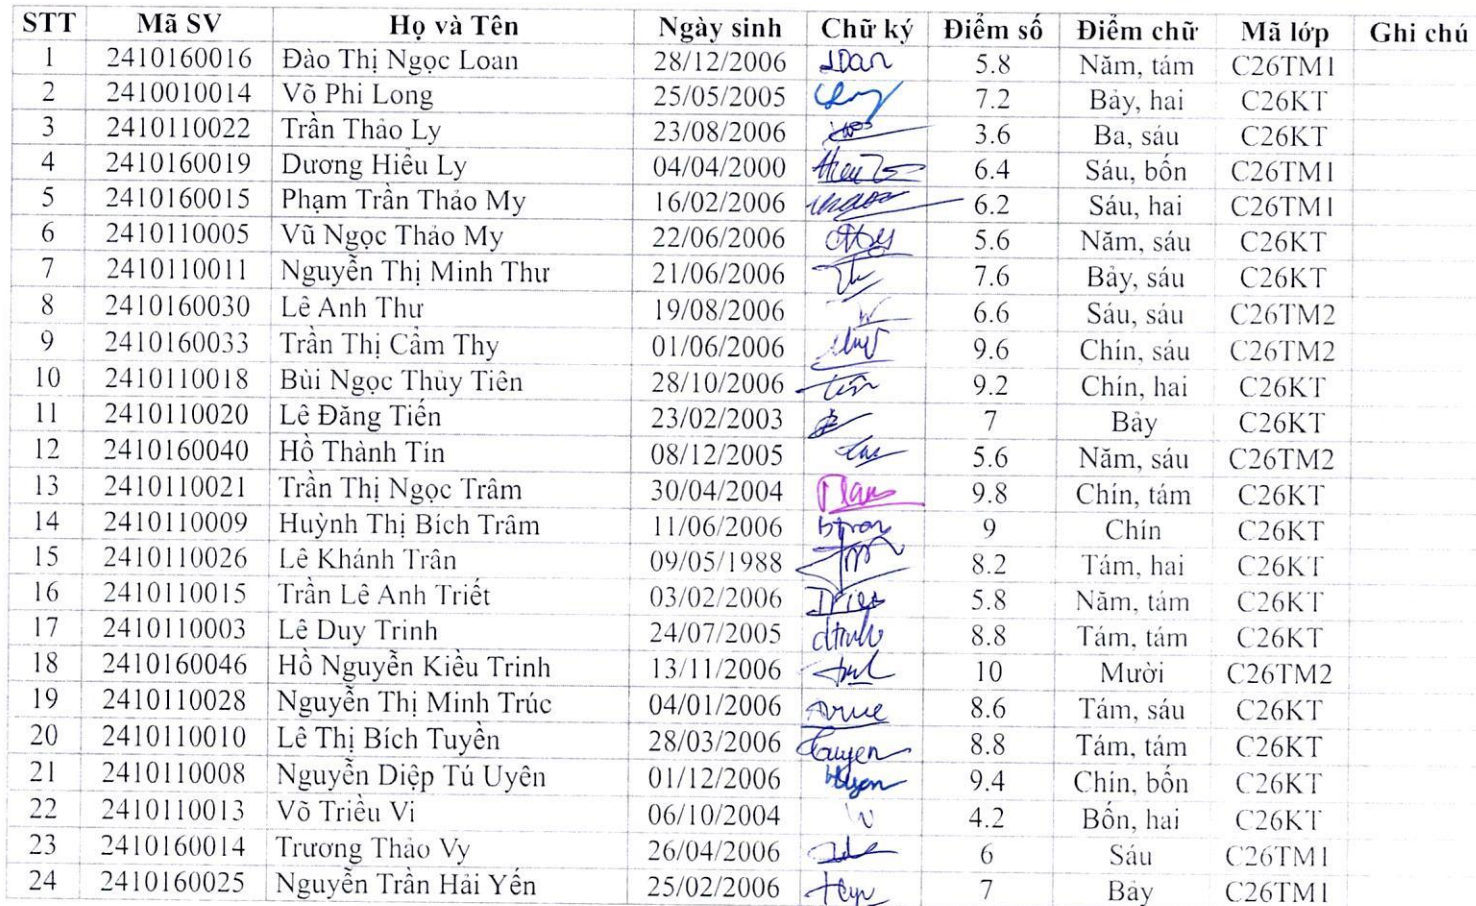 STT Mã SV Họ và Tên Ngày sinh Chữ ký Điểm số Điểm chữ Mã lớp Ghi chú
1 2410160016 Đào Thị Ngọc Loan 28/12/2006 Loan 5.8 Năm, tám C26TM1
2 2410010014 Võ Phi Long 25/05/2005 7.2 Bảy, hai C26KT
3 2410110022 Trần Thảo Ly 23/08/2006 3.6 Ba, sáu C26KT
4 2410160019 Dương Hiểu Ly 04/04/2000 6.4 Sáu, bốn C26TM1
5 2410160015 Phạm Trần Thảo My 16/02/2006 6.2 Sáu, hai C26TM1
6 2410110005 Vũ Ngọc Thảo My 22/06/2006 5.6 Năm, sáu C26KT
7 2410110011 Nguyễn Thị Minh Thư 21/06/2006 7.6 Bảy, sáu C26KT
8 2410160030 Lê Anh Thư 19/08/2006 6.6 Sáu, sáu C26TM2
9 2410160033 Trần Thị Cẩm Thy 01/06/2006 9.6 Chín, sáu C26TM2
10 2410110018 Bùi Ngọc Thủy Tiên 28/10/2006 Tiên 9.2 Chín, hai C26KT
11 2410110020 Lê Đăng Tiến 23/02/2003 7 Bảy C26KT
12 2410160040 Hồ Thành Tín 08/12/2005 5.6 Năm, sáu C26TM2
13 2410110021 Trần Thị Ngọc Trâm 30/04/2004 9.8 Chín, tám C26KT
14 2410110009 Huỳnh Thị Bích Trâm 11/06/2006 9 Chín C26KT
15 2410110026 Lê Khánh Trân 09/05/1988 8.2 Tám, hai C26KT
16 2410110015 Trần Lê Anh Triết 03/02/2006 5.8 Năm, tám C26KT
17 2410110003 Lê Duy Trinh 24/07/2005 8.8 Tám, tám C26KT
18 2410160046 Hồ Nguyễn Kiều Trinh 13/11/2006 10 Mười C26TM2
19 2410110028 Nguyễn Thị Minh Trúc 04/01/2006 8.6 Tám, sáu C26KT
20 2410110010 Lê Thị Bích Tuyền 28/03/2006 8.8 Tám, tám C26KT
21 2410110008 Nguyễn Diệp Tú Uyên 01/12/2006 9.4 Chín, bốn C26KT
22 2410110013 Võ Triều Vi 06/10/2004 4.2 Bốn, hai C26KT
23 2410160014 Trương Thảo Vy 26/04/2006 6 Sáu C26TM1
24 2410160025 Nguyễn Trần Hải Yến 25/02/2006 7 Bảy C26TM1